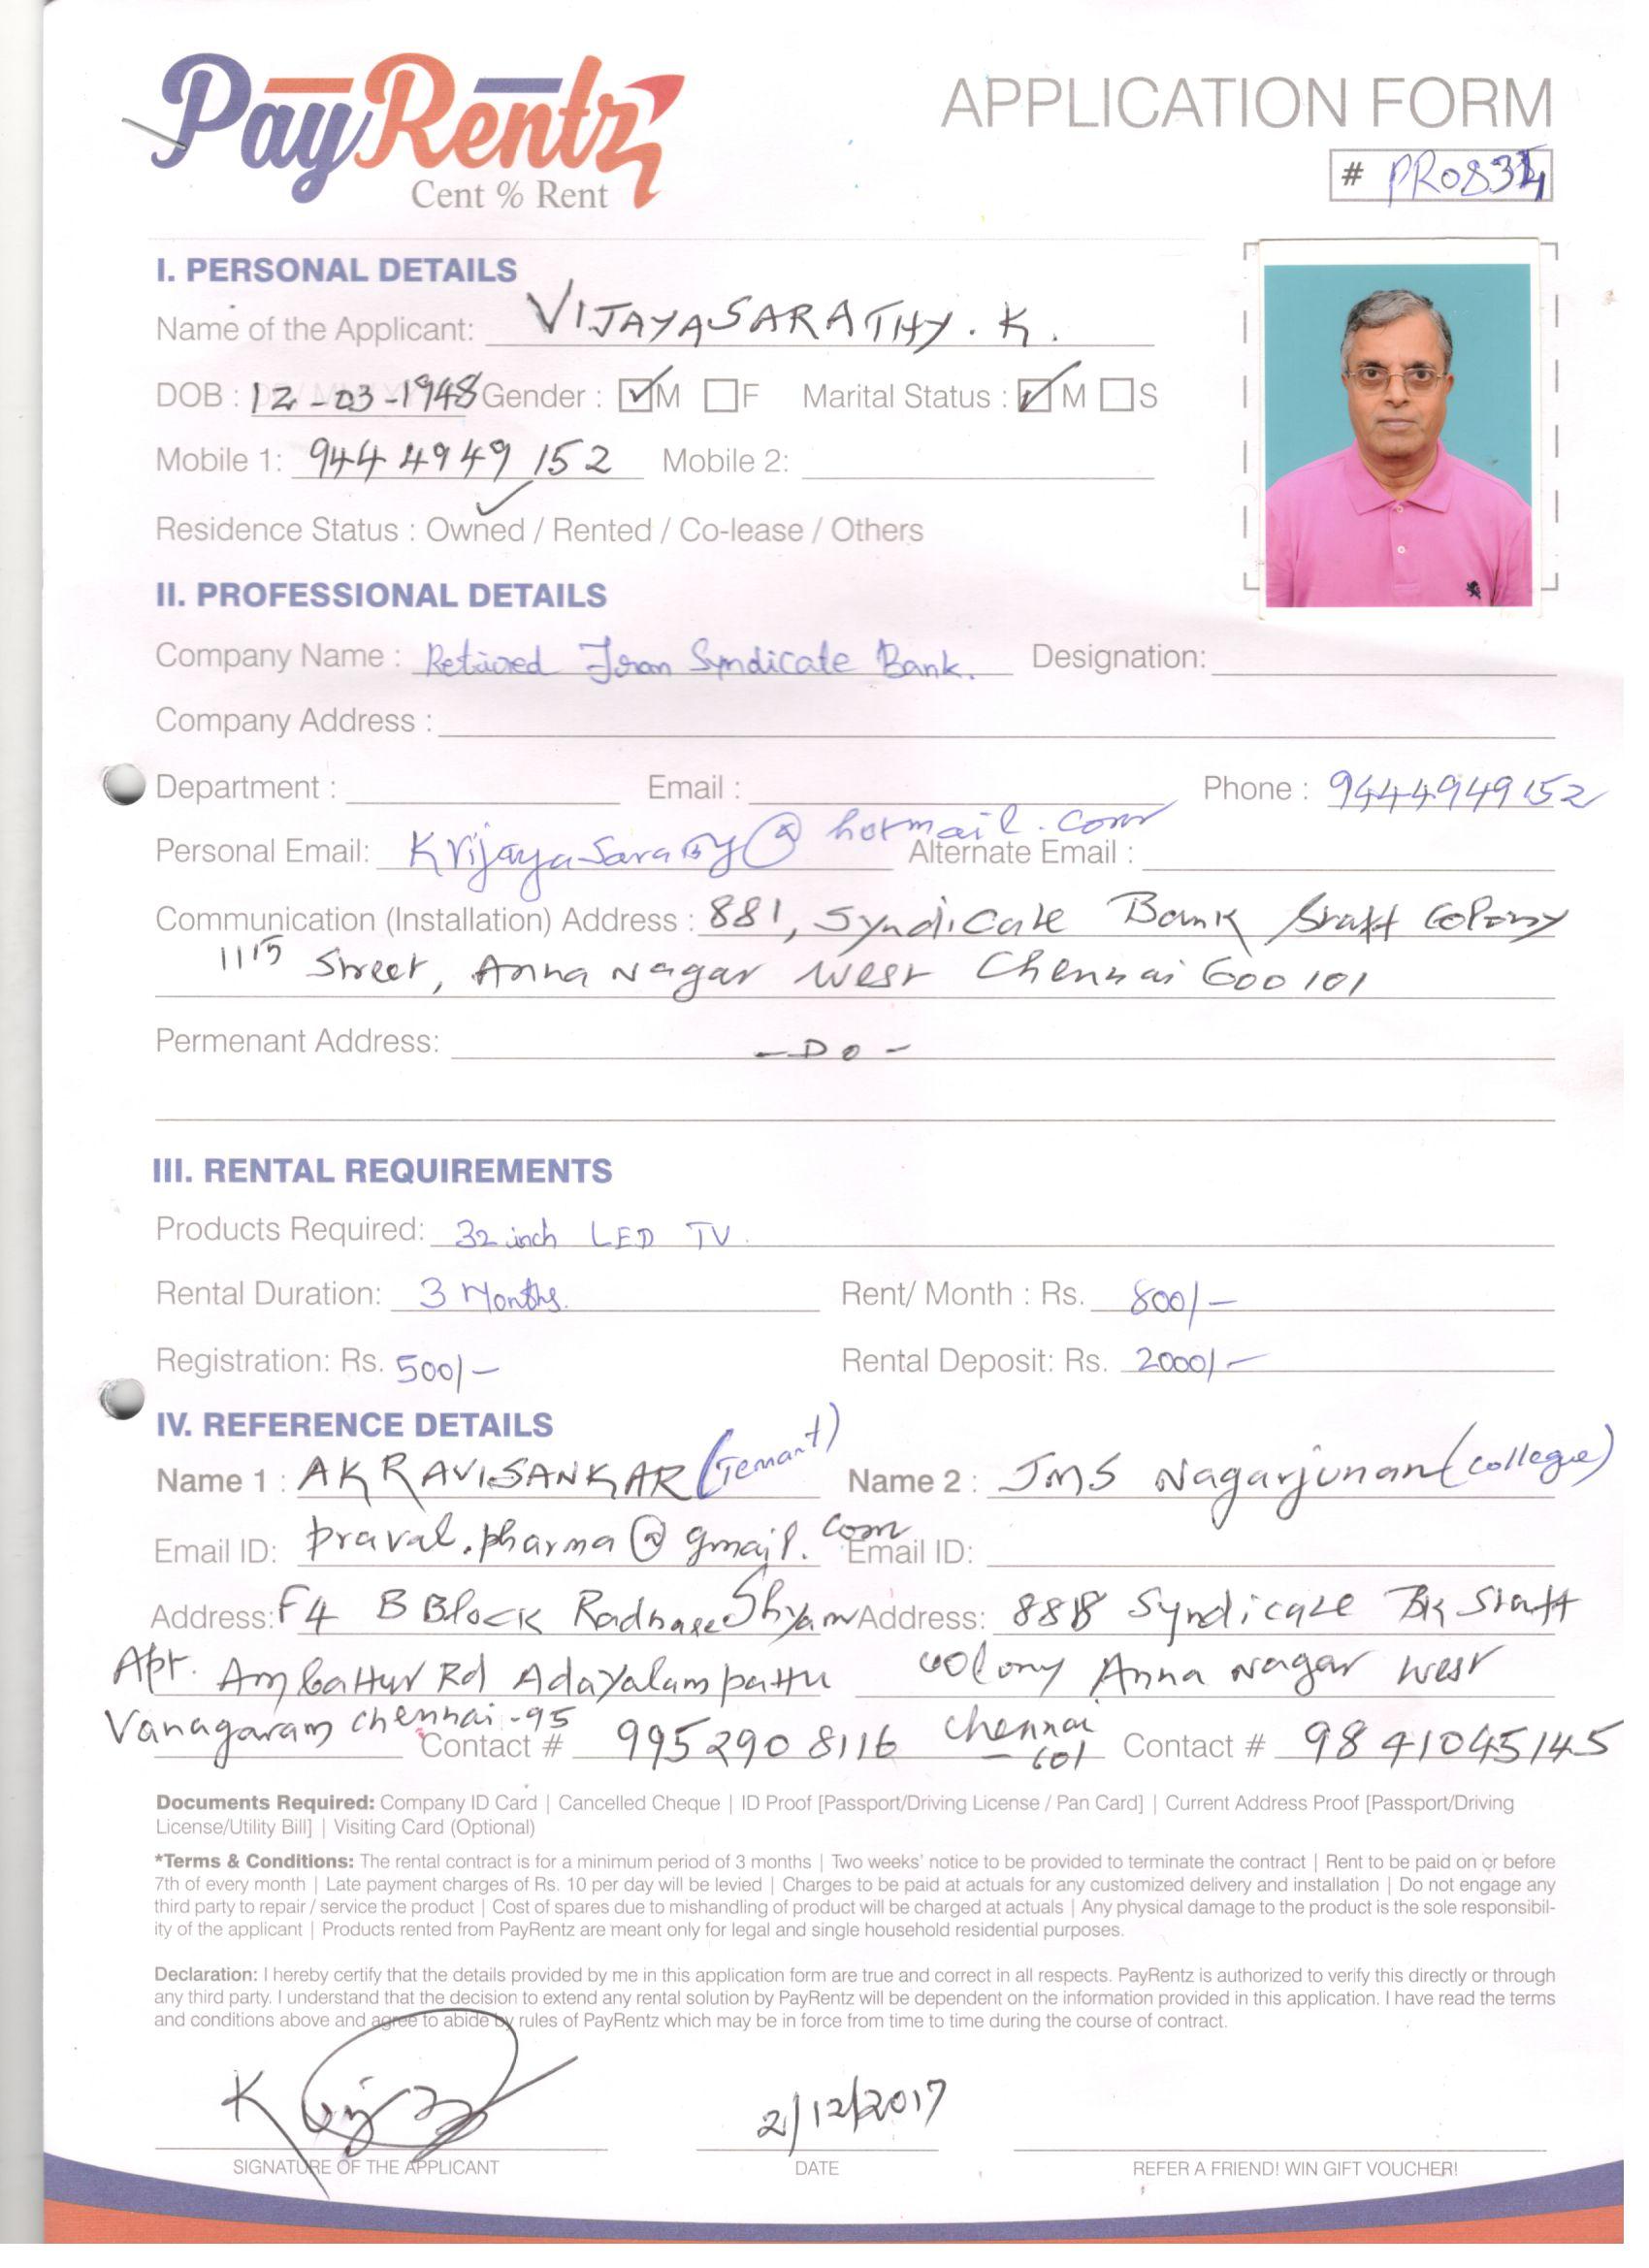 PayRentz
Cent % Rent
APPLICATION FORM
# PR0834
I. PERSONAL DETAILS
Name of the Applicant: VIJAYASARATHY. K.
DOB : 12-03-1948 Gender : ☑M ☐F Marital Status : ☑M ☐S
Mobile 1: 9444949152 Mobile 2:
Residence Status : Owned / Rented / Co-lease / Others
II. PROFESSIONAL DETAILS
Company Name : Retired from Syndicate Bank. Designation:
Company Address :
Department : Email : Phone : 9444949152
Personal Email: @hotmail.com Alternate Email :
Communication (Installation) Address : 881, Syndicate Bank Staff Colony
11th Street, Anna Nagar West Chennai 600101
Permenant Address: -DO-
III. RENTAL REQUIREMENTS
Products Required: 32 inch LED TV.
Rental Duration: 3 Months. Rent/ Month : Rs. 800/-
Registration: Rs. 500/- Rental Deposit: Rs. 2000/-
IV. REFERENCE DETAILS
Name 1 : AK RAVISANKAR (Tenant) Name 2 : JMS Nagarjunan (collegue)
Email ID: praval.pharma@gmail.com Email ID:
Address: F4 B Block Shyam Address: 888 Syndicate Bk Staff
Apt. Ambattur Rd Adayalampattu colony Anna Nagar West
Vanagaram chennai-95 Contact # 9952908116 chennai 601 Contact # 9841045145
Documents Required: Company ID Card | Cancelled Cheque | ID Proof [Passport/Driving License / Pan Card] | Current Address Proof [Passport/Driving
License/Utility Bill] | Visiting Card (Optional)
*Terms & Conditions: The rental contract is for a minimum period of 3 months | Two weeks' notice to be provided to terminate the contract | Rent to be paid on or before
7th of every month | Late payment charges of Rs. 10 per day will be levied | Charges to be paid at actuals for any customized delivery and installation | Do not engage any
third party to repair / service the product | Cost of spares due to mishandling of product will be charged at actuals | Any physical damage to the product is the sole responsibil-
ity of the applicant | Products rented from PayRentz are meant only for legal and single household residential purposes.
Declaration: I hereby certify that the details provided by me in this application form are true and correct in all respects. PayRentz is authorized to verify this directly or through
any third party. I understand that the decision to extend any rental solution by PayRentz will be dependent on the information provided in this application. I have read the terms
and conditions above and agree to abide by rules of PayRentz which may be in force from time to time during the course of contract.
2/12/2017
SIGNATURE OF THE APPLICANT DATE REFER A FRIEND! WIN GIFT VOUCHER!